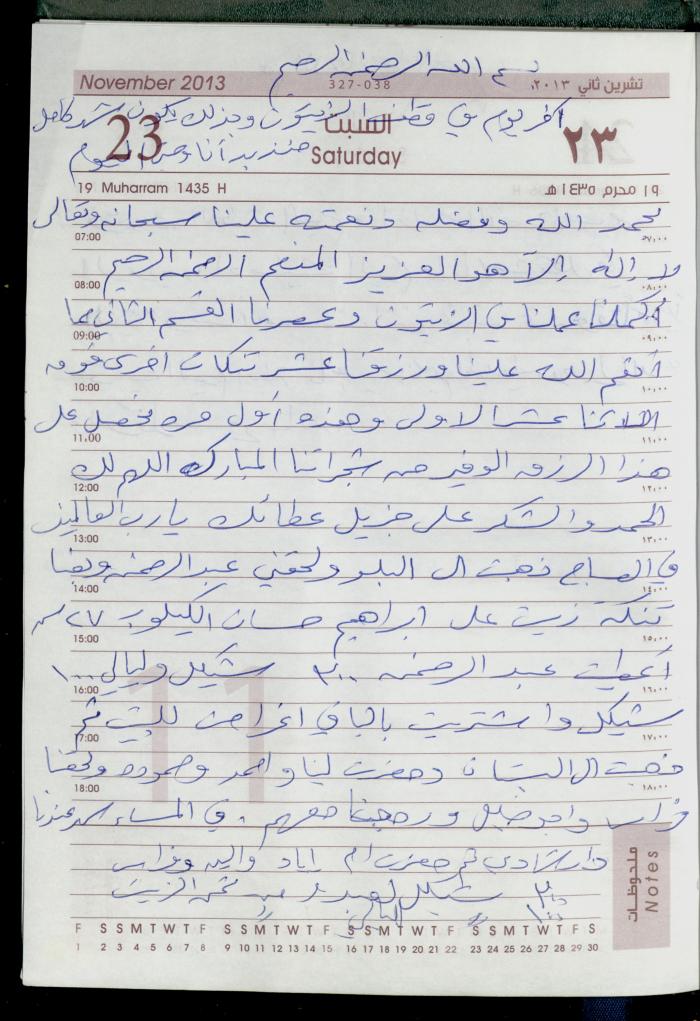 بسم الله الرحمن الرحيم
November 2013 327-038 تشرين ثاني ٢٠١٣
آخر يوم في قطف الزيتون وبذلك يكون شهر كامل
23 السبت Saturday ٢٣
منذ بدأنا وحتى اليوم
19 Muharram 1435 H ١٩ محرم ١٤٣٥ هـ
بحمد الله وفضله ونعمته علينا سبحانه وتعالى
07:00 ٠٧,٠٠
لا إله إلا هو العزيز المنعم الرحمن الرحيم
08:00 ٠٨,٠٠
أكملنا عملنا في الزيتون وعصرنا القسم الثاني مما
09:00 ٠٩,٠٠
أنعم الله علينا ورزقنا عشر تنكات اخرى فوق
10:00 ١٠,٠٠
الاثنا عشر الاولى وهذه أول مره نحصل على
11:00 ١١,٠٠
هذا الرزق الوفير من شجراتنا المباركه اللهم لك
12:00 ١٢,٠٠
الحمد والشكر على جزيل عطائك يا رب العالمين
13:00 ١٣,٠٠
في الصباح ذهبت الى البلد ولحقني عبد الرحمن وبعنا
14:00 ١٤,٠٠
تنكة زيت على ابراهيم حسان الكيلو بـ ٢٧ ش
15:00 ١٥,٠٠
أعطيت عبد الرحمن ٣٠٠ شيكل وليالي ١٠٠
16:00 ١٦,٠٠
شيكل واشتريت بالباقي اغراض للبيت ثم
17:00 ١٧,٠٠
ذهبت الى البستان وحضرت لينا واحمد وحموده ولحقنا
18:00 ١٨,٠٠
فراس وابو خليل ورجعنا معهم. في المساء سهر عندنا
دار شادي ثم حضرت ام اياد واليه وفراس
٣٠٠ شيكل لعبد من ثمن الزيت
١٠٠ ليالي
ملحوظات Notes
F S S M T W T F S S M T W T F S S M T W T F S S M T W T F S
1 2 3 4 5 6 7 8 9 10 11 12 13 14 15 16 17 18 19 20 21 22 23 24 25 26 27 28 29 30